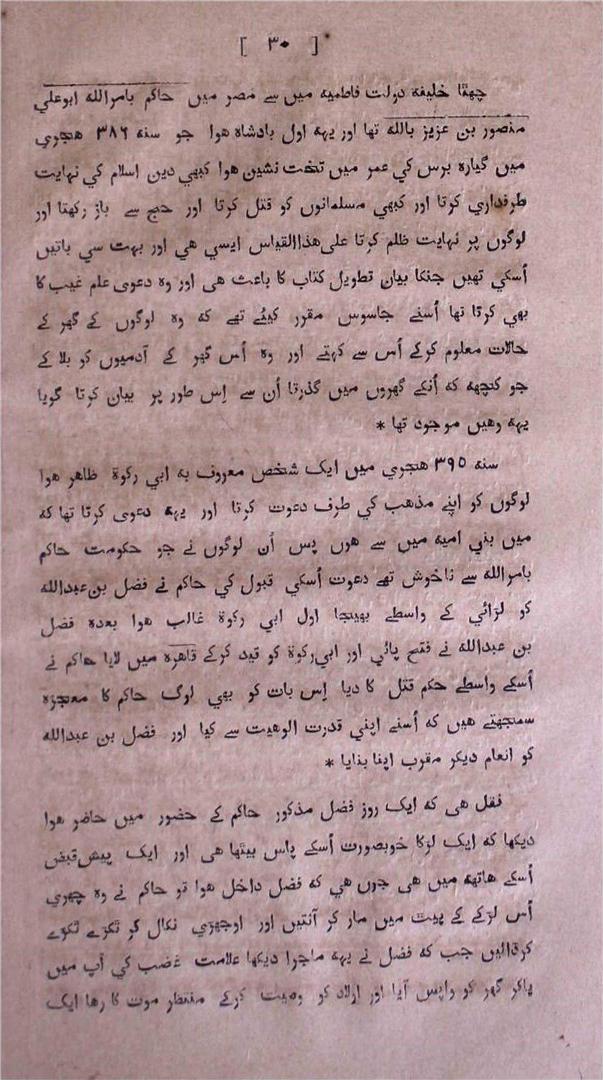 [ ٣٠ ]
چھٹا خلیفه دولت فاطمیه میں سے مصر میں حاکم بامرالله ابوعلي
منصور بن عزیز بالله تھا اور یهه اول بادشاه هوا جو سنه ٣٨٦ هجري
میں گیاره برس کي عمر میں تخت نشین هوا کبھي دین اسلام کي نهایت
طرفداري کرتا اور کبھي مسلمانوں کو قتل کرتا اور حج سے باز رکھتا اور
لوگوں پر نهایت ظلم کرتا علی هذاالقیاس ایسي هي اور بهت سي باتیں
اُسکي تھیں جنکا بیان تطویل کتاب کا باعث هی اور وه دعوی علم غیب کا
بھي کرتا تھا اُسنے جاسوس مقرر کیئے تھے که وه لوگوں کے گھر کے
حالات معلوم کرکے اُس سے کهتے اور وه اُس گھر کے آدمیوں کو بلا کے
جو کچهه که اُنکے گھروں میں گذرتا اُن سے اِس طور پر بیان کرتا گویا
یهه وهیں موجود تھا *
سنه ٣٩٥ هجري میں ایک شخص معروف به ابي رکوة ظاهر هوا
لوگوں کو اپنے مذهب کي طرف دعوت کرتا اور یهه دعوی کرتا تھا که
میں بني امیه میں سے هوں پس اُن لوگوں نے جو حکومت حاکم
بامرالله سے ناخوش تھے دعوت اُسکي قبول کي حاکم نے فضل بن عبدالله
کو لڑائي کے واسطے بھیجا اول ابي رکوة غالب هوا بعده فضل
بن عبدالله نے فتح پائي اور ابي رکوة کو قید کرکے قاهره میں لایا حاکم نے
اُسکے واسطے حکم قتل کا دیا اِس بات کو بھي لوگ حاکم کا معجزه
سمجھتے هیں که اُسنے اپني قدرت الوهیت سے کیا اور فضل بن عبدالله
کو انعام دیکر مقرب اپنا بنایا *
نقل هی که ایک روز فضل مذکور حاکم کے حضور میں حاضر هوا
دیکھا که ایک لڑکا خوبصورت اُسکے پاس بیٹھا هی اور ایک پیش قبض
اُسکے هاتهه میں هی جوں هي که فضل داخل هوا تو حاکم نے وه چھري
اُس لڑکے کے پیٹ میں مار کر آنتیں اور اوجھڑي نکال کر ٹکڑے ٹکڑے
کرڈالیں جب که فضل نے یهه ماجرا دیکھا علامت غضب کي آپ میں
پاکر گھر کو واپس آیا اور اولاد کو وصیت کرکے منتظر موت کا رها ایک